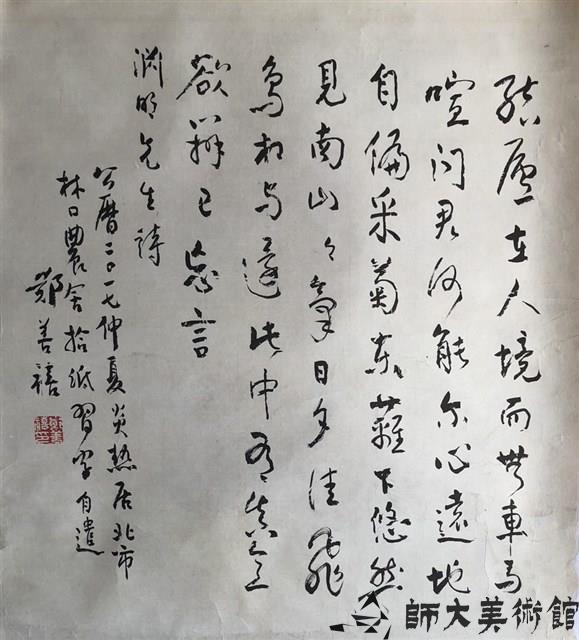 結廬在人境而無車馬
喧问君何能尔心遠地
自偏采菊東籬下悠然
見南山々氣日夕佳飛
鳥相与還此中有真意
欲辨已忘言
渕明先生詩
公曆二〇一七仲夏炎熱居北市
林口農舍拾紙習字自遣
鄭善禧
師大美術館